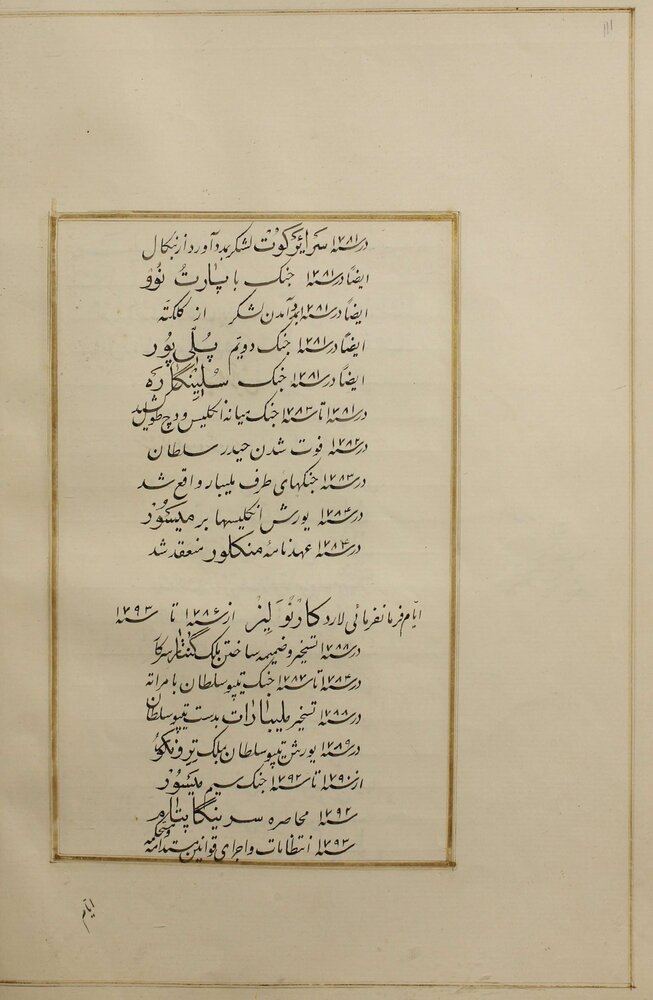 ۱۱۱
در سنه ۱۷۸۱ سرایرکوت لشکر بمدد آورد از بنکال
ایضاً در سنه ۱۷۸۱ جنک با پارت نُووُ
ایضاً در سنه ۱۷۸۱ بمدد آمدن لشکر از کلکتّه
ایضاً در سنه ۱۷۸۱ جنک دویّم پُلّی پُور
ایضاً در سنه ۱۷۸۱ جنک سلینکاره
در سنه ۱۷۸۱ تا سنه ۱۷۸۳ جنک میانه انکلیس و دچ طویل شد
در سنه ۱۷۸۲ فوت شدن حیدر سلطان
در سنه ۱۷۸۳ جنکهای طرف ملیبار واقع شد
در سنه ۱۷۸۴ یورش انکلیسها بر میسُور
در سنه ۱۷۸۴ عهدنامهٔ منکلور منعقد شد
ایّام فرمانفرمائی لارد کارنوَلیز از سنه ۱۷۸۶ تا سنه ۱۷۹۳
در سنه ۱۷۸۸ تسخیر و ضمیمه ساختن ملک کنتار سرکار
در سنه ۱۷۸۴ تا سنه ۱۷۸۷ جنک تیپو سلطان با مراته
در سنه ۱۷۸۸ تسخیر ملیبارات بدست تیپو سلطان
در سنه ۱۷۸۹ یورش تیپو سلطان بملک تروَنکوُر
از سنه ۱۷۹۰ تا سنه ۱۷۹۲ جنک سیم میسُور
سنه ۱۷۹۲ محاصره سرینکاپتام
سنه ۱۷۹۳ انتظامات و اجرای قوانین مستدامه و محکمه
ایّام